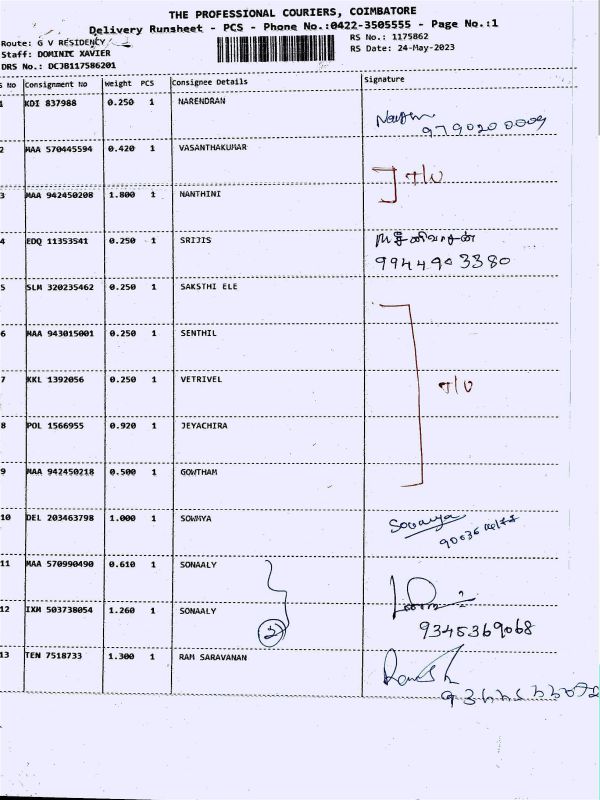 THE PROFESSIONAL COURIERS, COIMBATORE
Delivery Runsheet - PCS - Phone No.:0422-3505555 - Page No.:1
Route: G V RESIDENCY
RS No.: 1175862
Staff: DOMINIC XAVIER
RS Date: 24-May-2023
DRS No.: DCJB117586201
S No Consignment No Weight PCS Consignee Details Signature
1 KDI 837988 0.250 1 NARENDRAN
9790200009
2 MAA 570445594 0.420 1 VASANTHAKUMAR
3 MAA 942450208 1.800 1 NANTHINI
4 EDQ 11353541 0.250 1 SRIJIS ஸ்ரீனிவாசன்
9944903380
5 SLM 320235462 0.250 1 SAKSTHI ELE
6 MAA 943015001 0.250 1 SENTHIL
7 KKL 1392056 0.250 1 VETRIVEL
8 POL 1566955 0.920 1 JEYACHIRA
9 MAA 942450218 0.500 1 GOWTHAM
10 DEL 203463798 1.000 1 SOWMYA Sowmya
11 MAA 570990490 0.610 1 SONAALY
12 IXM 503738054 1.260 1 SONAALY
2 9345369068
13 TEN 7518733 1.300 1 RAM SARAVANAN